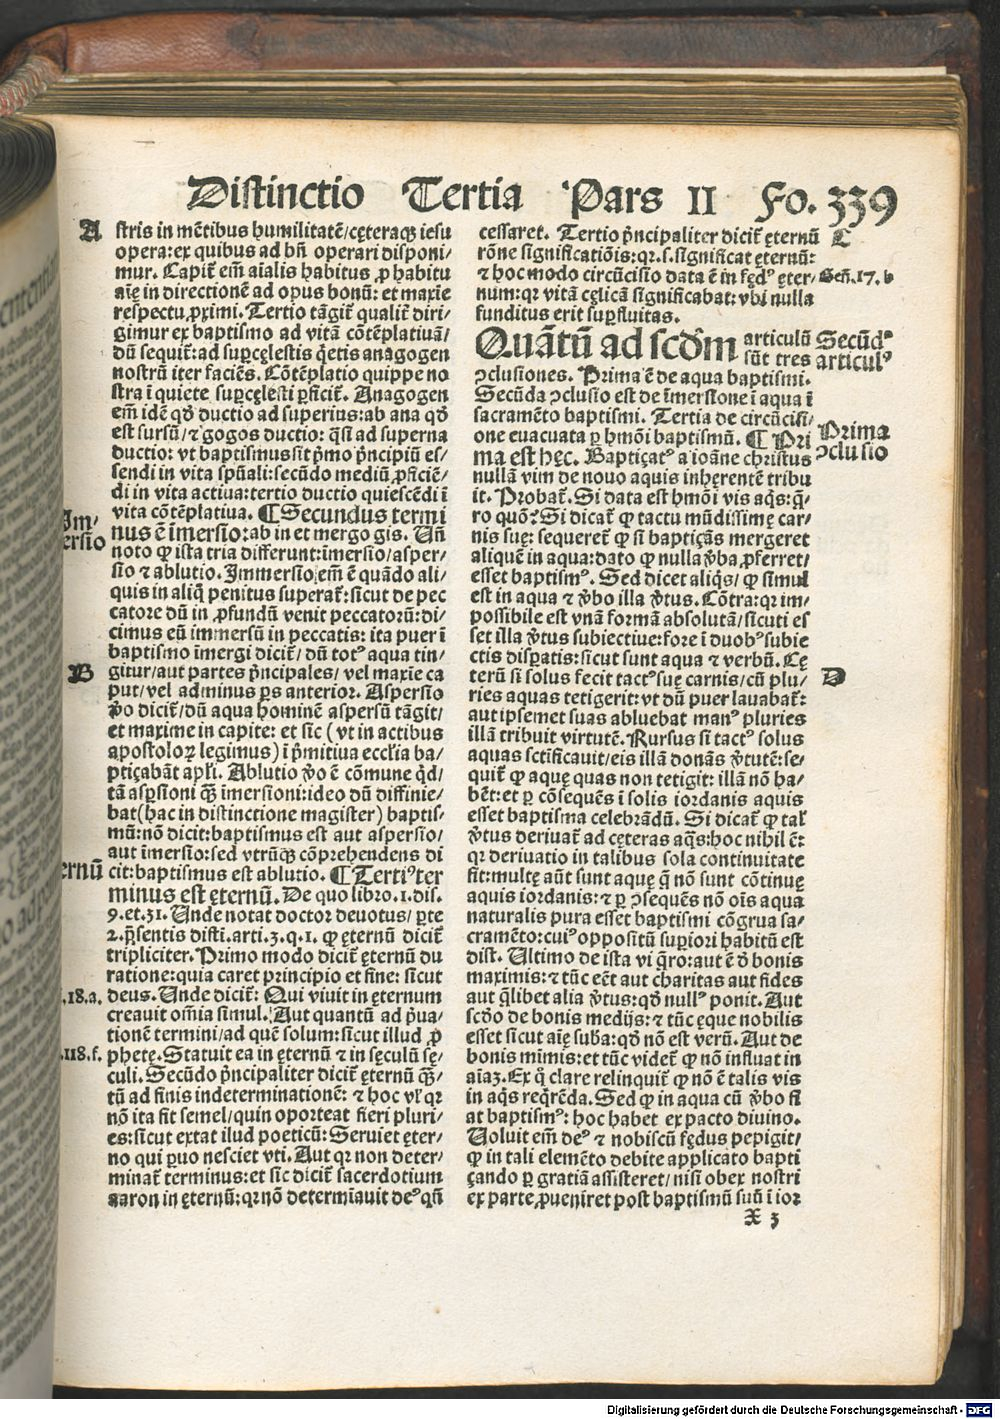 Distinctio Tertia Pars II Fo. 339
A
stris in mẽtibus humilitatẽ/cęteraqꝫ iesu
opera:ex quibus ad bñ operari disponi⸗
mur. Capit̃ em̃ aĩalis habitus ꝓ habitu
aĩę in directionẽ ad opus bonũ: et maxĩe
respectu ꝓximi. Tertio tãgit̃ qualit̃ diri⸗
gimur ex baptismo ad vitã cõtẽplatiuã/
dũ sequit̃:ad suꝑcęlestis q̃etis anagogen
nostrũ iter faciẽs. Cõtẽplatio quippe no
stra ĩ quiete suꝑcęlesti ꝑficit̃. Anagogen
em̃ idẽ qđ ductio ad superius:ab ana qđ
est sursũ/⁊ gogos ductio: q̃si ad superna
ductio: vt baptismus sit p̃mo p̃ncipiũ es⸗
sendi in vita spũali:secũdo mediũ ꝓficiẽ⸗
di in vita actiua:tertio ductio quiescẽdi ĩ
vita cõtẽplatiua. ¶ Secundus termi
nus ẽ ĩmersio:ab in et mergo gis. Uñ
noto ꝙ ista tria differunt:ĩmersio/asper⸗
sio ⁊ ablutio. Immersio em̃ ẽ quãdo ali⸗
quis in aliq̃ penitus superat̃:sicut de pec
catore dũ in ꝓfundũ venit peccatorũ:di⸗
cimus eũ immersũ in peccatis: ita puer ĩ
baptismo ĩmergi dicit̃/ dũ totꝰ aqua tin⸗
gitur/aut partes p̃ncipales/ vel maxĩe ca
put/vel adminus ꝑs anterior. Aspersio
ꝟo dicit̃/dũ aqua hominẽ aspersũ tãgit/
et maxime in capite: et sic (vt in actibus
apostoloꝝ legimus) ĩ p̃mitiua eccl̃ia ba⸗
ptiçabãt apl̃i. Ablutio ꝟo ẽ cõmune q̃d/
tã asꝑsioni qꝫ̃ ĩmersioni:ideo dũ diffinie⸗
bat(hac in distinctione magister) baptis⸗
mũ:nõ dicit:baptismus est aut aspersio/
aut ĩmersio:sed vtrũqꝫ cõprehendens di
cit:baptismus est ablutio. ¶ Tertiꝰ ter
minus est ęternũ. De quo libro.1.dis.
9.et.31. Unde notat doctor deuotus/ ꝑte
2.p̃sentis disti.arti.3.q.1. ꝙ ęternũ dicit̃
tripliciter. Primo modo dicit̃ ęternũ du
ratione:quia caret principio et fine: sicut
deus. Unde dicit̃: Qui viuit in ęternum
creauit om̃ia simul. Aut quantũ ad p̃ua⸗
tionẽ termini/ad quẽ solum:sicut illud ꝓ
phetę. Statuit ea in ęternũ ⁊ in sęculũ sę⸗
culi. Secũdo p̃ncipaliter dicit̃ ęternũ qꝫ̃⸗
tũ ad finis indeterminationẽ: ⁊ hoc vl̃ qꝛ
nõ ita fit semel/quin oporteat fieri pluri⸗
es:sicut extat illud poeticũ: Seruiet ęter⸗
no qui ꝑuo nesciet vti. Aut qꝛ non deter⸗
minat̃ terminus:et sic dicit̃ sacerdotium
aaron in ęternũ:qꝛ nõ determĩauit deꝰ qñ
Im⸗
ersio
B
ernũ
.18.a.
.118.f.
cessaret. Tertio p̃ncipaliter dicit̃ ęternũ
rõne significatiõis:qꝛ.s.significat ęternũ:
⁊ hoc modo circũcisio data ẽ in fędꝰ ęter⸗
num:qꝛ vitã cęlicã significabat: vbi nulla
funditus erit suꝑfluitas.
Quãtũ ad scđm articulũ
sũt tres
ↄclusiones. Prima ẽ de aqua baptismi.
Secũda ↄclusio est de ĩmersione ĩ aqua ĩ
sacramẽto baptismi. Tertia de circũcisi⸗
one euacuata ꝑ hmõi baptismũ. ¶ Pri
ma est hęc. Baptiçatꝰ a ioãne christus
nullã vim de nouo aquis inhęrentẽ tribu
it. Probat̃. Si data est hmõi vis aq̃s: q̃⸗
ro quõ? Si dicat̃ ꝙ tactu mũdissimę car⸗
nis suę: sequeret̃ ꝙ si baptiçãs mergeret
aliquẽ in aqua:dato ꝙ nulla ꝟba ꝓferret/
esset baptismꝰ. Sed dicet aliq̃s/ ꝙ simul
est in aqua ⁊ ꝟbo illa ꝟtus. Cõtra:qꝛ im⸗
possibile est vnã formã absolutã/sicuti es
set illa ꝟtus subiectiue:fore ĩ duobꝰ subie
ctis disꝑatis:sicut sunt aqua ⁊ verbũ. Cę
terũ si solus fecit tactꝰ suę carnis/cũ plu⸗
ries aquas tetigerit: vt dũ puer lauabat̃:
aut ipsemet suas abluebat manꝰ pluries
illã tribuit virtutẽ. Rursus si tactꝰ solus
aquas sctĩficauit/eis illã donãs ꝟtutẽ:se⸗
quit̃ ꝙ aquę quas non tetigit: illã nõ ha⸗
bẽt:et ꝑ cõsequẽs ĩ solis iordanis aquis
esset baptisma celebrãdũ. Si dicat̃ ꝙ tal̃
ꝟtus deriuat̃ ad cęteras aq̃s:hoc nihil ẽ:
qꝛ deriuatio in talibus sola continuitate
fit:multę aũt sunt aquę q̃ nõ sunt cõtinuę
aquis iordanis:⁊ ꝑ ↄsequẽs nõ oĩs aqua
naturalis pura esset baptismi cõgrua sa⸗
cramẽto:cuiꝰ oppositũ suꝑiori habitũ est
dist. Ultimo de ista vi q̃ro:aut ẽ ð bonis
maximis:⁊ tũc eẽt aut charitas aut fides
aut q̃libet alia ꝟtus:qđ nullꝰ ponit. Aut
scđo de bonis medijs:⁊ tũc ęque nobilis
esset sicut aĩę suba:qđ nõ est verũ. Aut de
bonis mĩmis:et tũc videt̃ ꝙ nõ influat in
aĩaꝫ. Ex q̊ clare relinquit̃ ꝙ nõ ẽ talis vis
in aq̃s req̃rẽda. Sed ꝙ in aqua cũ ꝟbo fi
at baptismꝰ: hoc habet ex pacto diuino.
Uoluit em̃ deꝰ ⁊ nobiscũ fędus pepigit/
ꝙ in tali elemẽto debite applicato bapti
çando ꝑ gratiã assisteret/ nisi obex nostri
ex parte ꝓueniret post baptismũ suũ ĩ ior
C
Geñ.17.b
Secũdꝰ
articulꝰ
Prima
ↄclusio
D
X 3
Digitalisierung gefördert durch die Deutsche Forschungsgemeinschaft - DFG